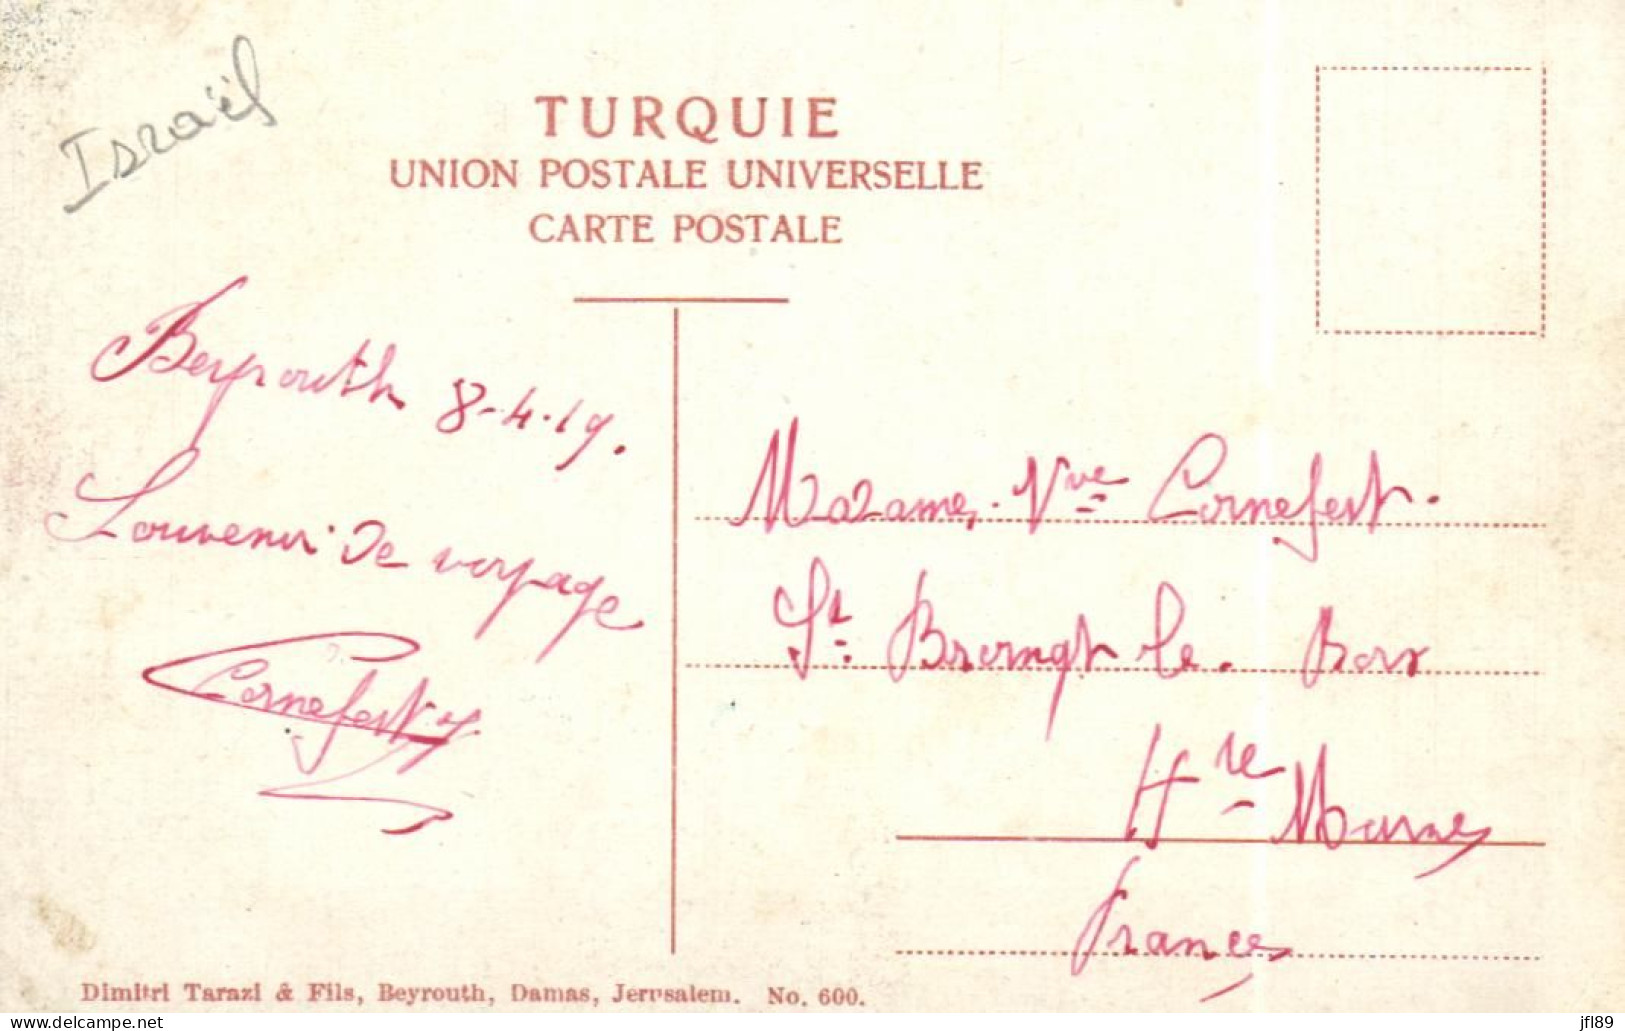 Israël
TURQUIE
UNION POSTALE UNIVERSELLE
CARTE POSTALE
Beyrouth 8-4-19.
Souvenir de voyage
Cornefert
Madame Vve Cornefert.
St. le Bois
Hte Marne
France
Dimitri Tarazi & Fils, Beyrouth, Damas, Jerusalem. No. 600.
https://www.delcampe.net
jfl89